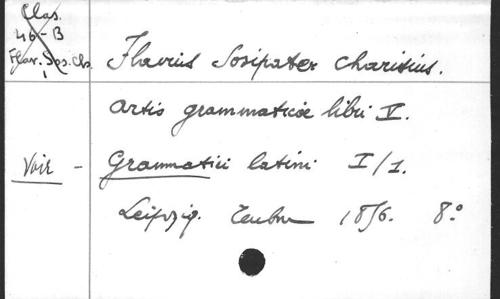 Clas.
46-B
Flav. Sos. Ch.
Flavius Sosipater Charisius.
Artis grammaticæ libri V.
Voir - Grammatici latini I/1.
Leipzig. Teubner 1856. 8°